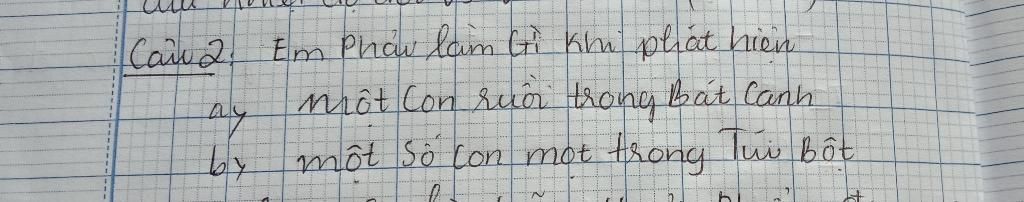 Câu 2: Em Phải làm Gì khi phát hiện
a, một Con ruồi trong Bát Canh
b, một số con mọt trong Túi Bột